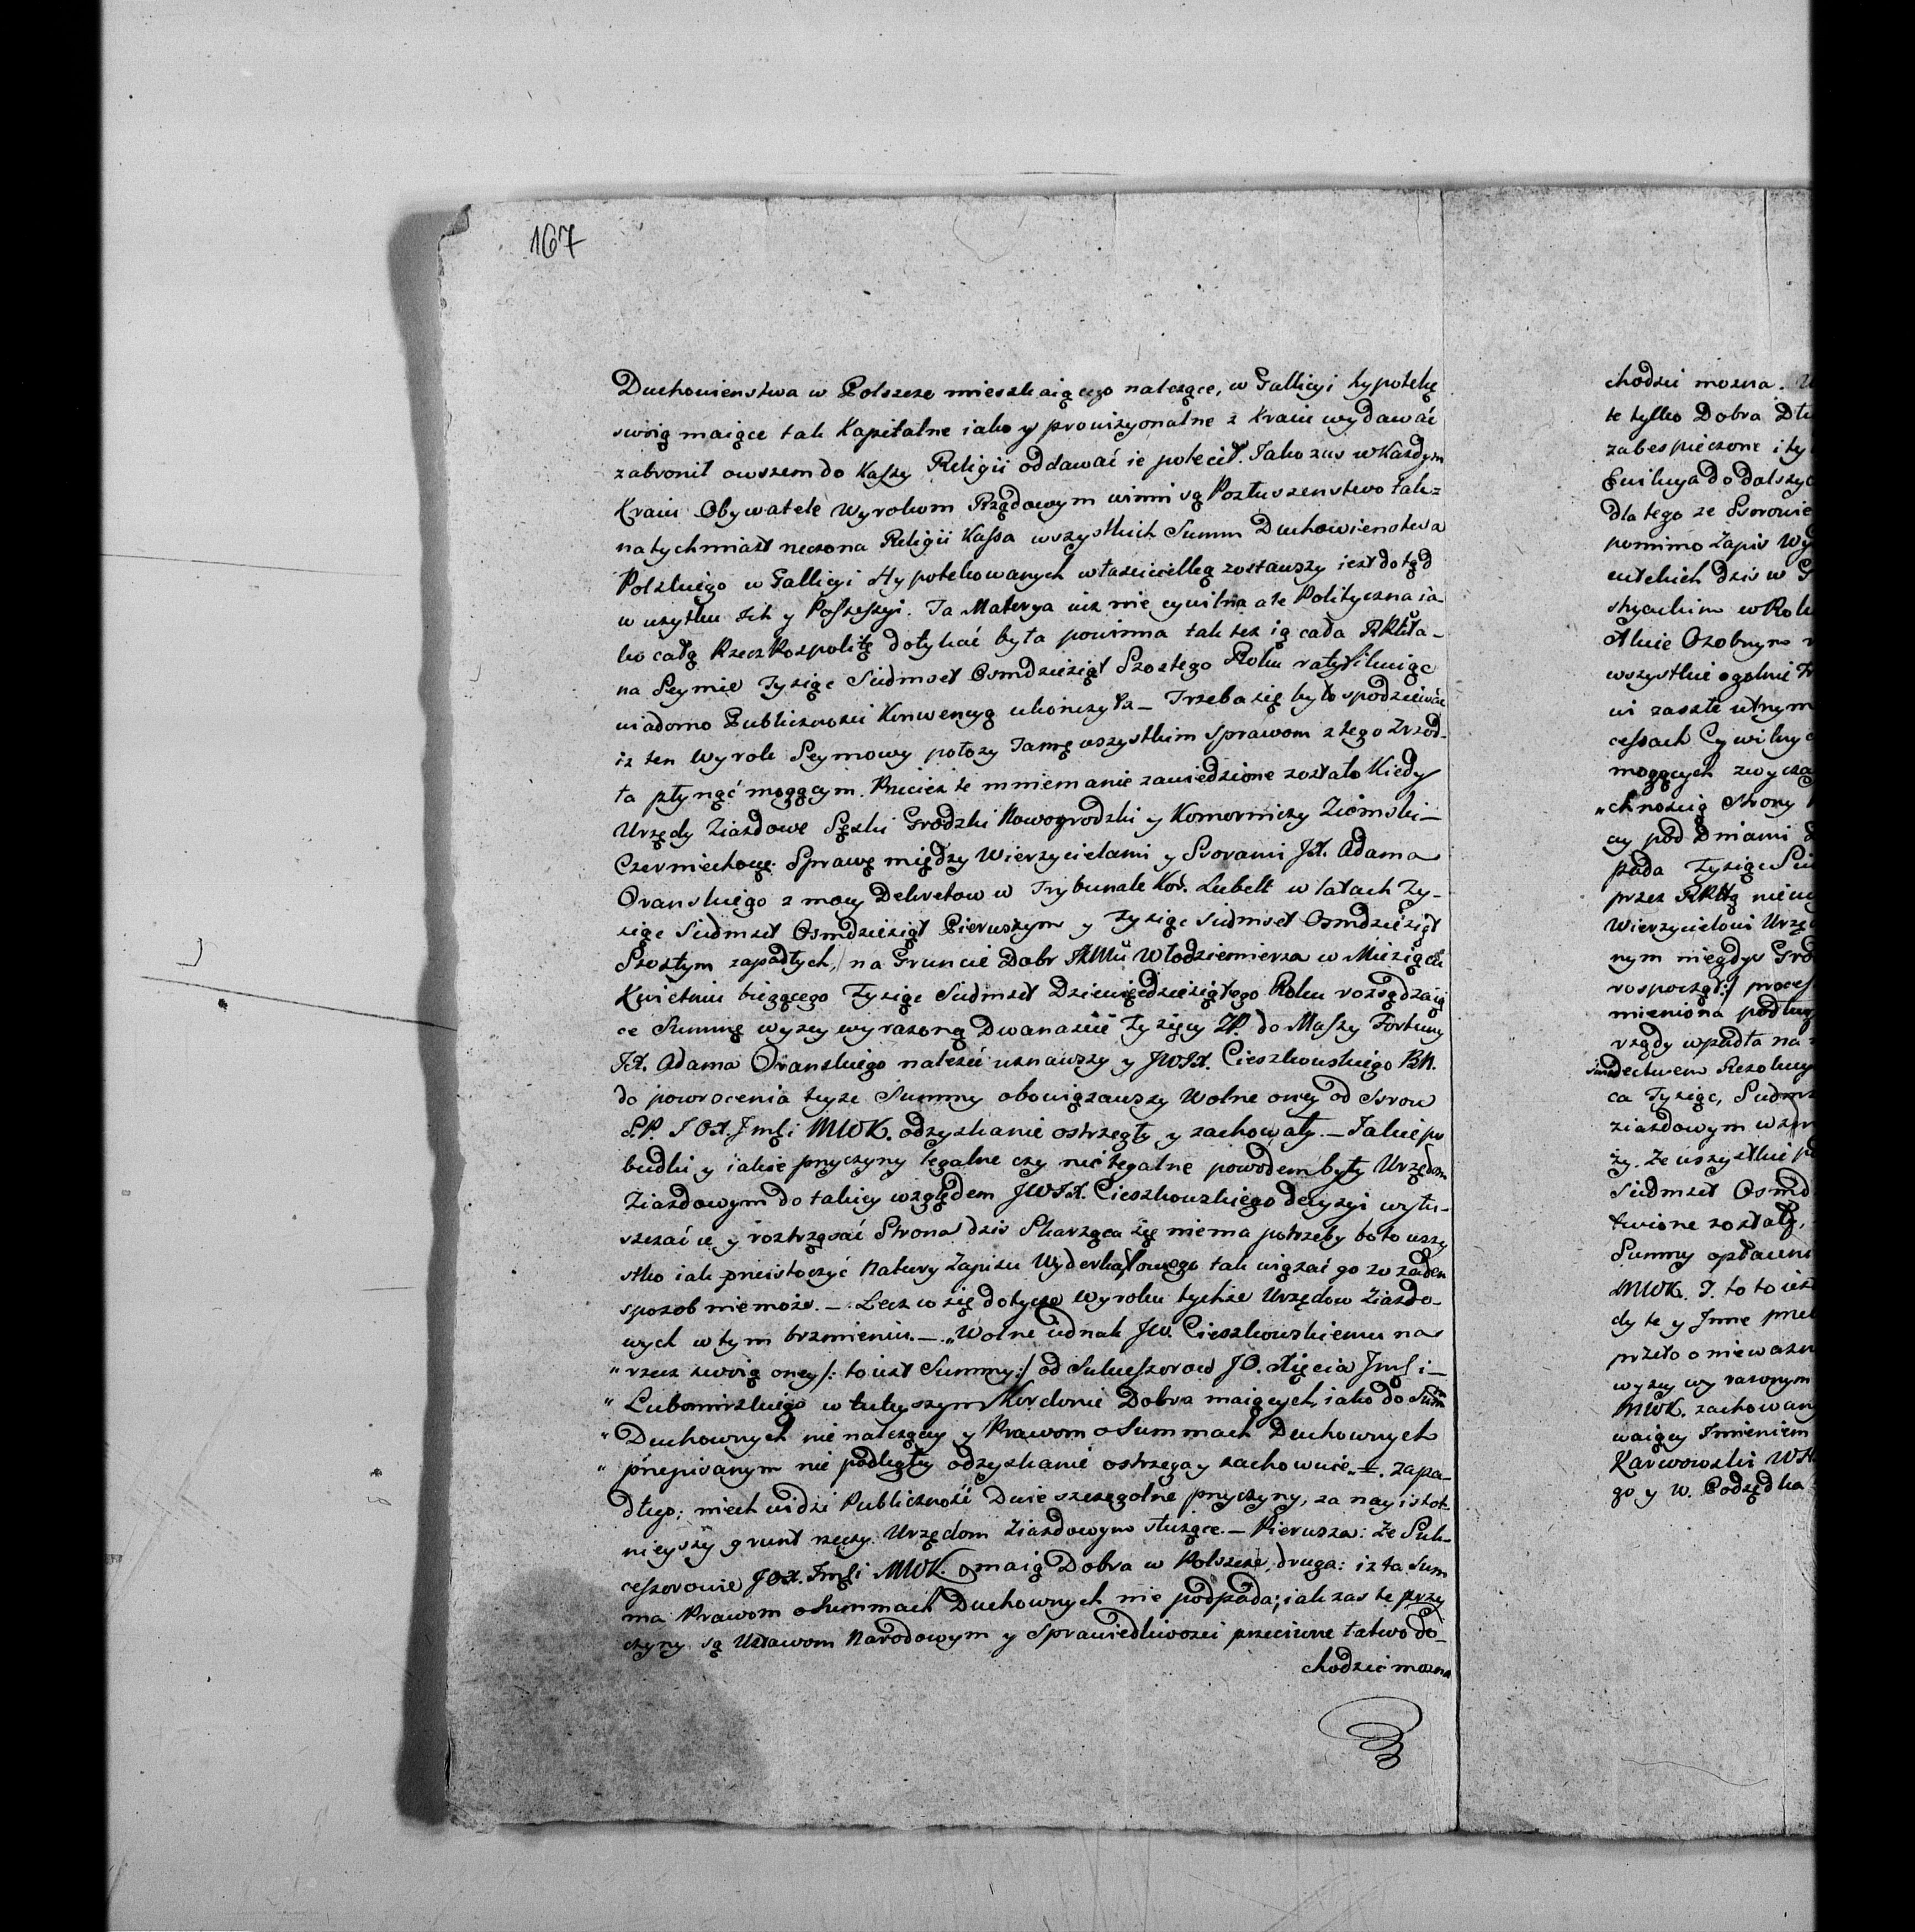 167
Duchowienstwa w Polszcze mieszkaiącego należące, w Gallicyi hypotekę
swoią maiące tak Kapitalne iako y prowizyonalne z Kraiu wydawać
zabronił owszem do Kassy Religii oddawać ie polecił. Jako zas w Każdym
Kraiu Obywatele Wyrokom Rządowym winni są Posłuszenstwo tak=
natychmiast rzeczona Religii Kassa wszystkich Summ Duchowienstwa
Polskiego w Gallicyi Hypotekowanych własciciellką zostawszy iest dotąd
w uzytku Ich y Possessyi. Ta Materya iuz nie cywilna ale Polityczna ia-
ko całą Rzeczkospolitę dotykać była powinna tak tez ią cała RPlta-
na Seymie Tysiąc Siedmset Osmdziesiąt Szostego Roku ratyfikuiąc
wiadomo Publicznosci Konwencyą ukończyła_ Trzeba się było spodziewać
iz ten Wyrok Seymowy połozy Tamę wszystkim sprawom z tego Zrzod-
ła płynąć mogącym. Przeciez te mniemanie zawiedzione zostało Kiedy
Urzędy Ziazdowe Sądzki Grodzki Nowogrodzki y Komorniczy Ziemski_
Czerniechow: Sprawę między Wierzycielami y Ssorami JX. Adama
Oranskiego z mocy Dekretow w Trybunale Kor. Lubelt w latach Ty-
siąc Siedmset Osmdziesiąt Pierwszym y Tysiąc Siedmset Osmdziesiąt
Szostym zapadłych, na Gruncie Dobr Włodziemierza w Miesiącu
Kwietniu bieżącego Tysiąc Siedmset Dziewiędziesiątego Roku rozsądzaią
ce Summę wyzey wyrazoną Dwanascie Tysięcy ZP. do Massy Fortuny
JX. Adama Oranskiego nalezeć uznawszy y JWJX. Cieszkowskiego BK.
do powrocenia teyze Summy obowiązawszy Wolne oney od Ssrow
S.P. J O X. Jmsi MWK. odzyskanie ostrzegły y zachowały._ Jakie po
budki y iakie przyczyny legalne czy nielegalne powodem były Urzędom
Ziazdowym do takiey względem JWJX. Cieszkowskiego decyzyi wyłu-
szczać ie y roztrząsać Strona dzis Skarząca się niema potrzeby bo to wszy
stko iak przeistoczyć Natury Zapisu Wyderkaffowego tak wiązać go zo zaden
sposob niemoże._ Lecz co się dotycze Wyroku tychze Urzędow Ziazdo-
wych w tym brzmieniu._ „Wolne iednak JW. Cieszkowskiemu na
„rzecz swoią oney /: to iest Summy :/ od Sukcessorow JO. Xięcia Jmsi_
„Lubomirskiego w tuteyszym Kordonie Dobra maiących, iako do Sum
„Duchownych nie nalezącey y Prawom o Summach Duchownych
„przepisanym nie podległey odzyskanie ostrzega y zachowuie„_ zapa-
dłego: niech widzi Publiczność Dwie szczegolne przyczyny, za nayistot-
nieyszy grunt rzeczy Urzędom Ziazdowym słuzące._ Pierwsza: Ze Suk-
cessorowie JOX. Jmsi MWK. maią Dobra w Polszcze, druga: iz ta Sum
ma Prawom o Summach Duchownych nie podpada; iak zas te przy
czyny są Ustawom Narodowym y Sprawiedliwosci przeciwne łatwo do-
chodzić mozna
chodzić mozna.
te tylko Dobra
zabespieczone i
do dalszy
dla tego ze Ssorowie
pomimo Zapis
dzis w
w Ro
Osobnym
wszystkie ogolnie
zaszłe
cessach Cywilny
mogących
„chnoscią Strony
cy pod Dniami
pada Tysiąc
przez
Wierzycielowi Urzę
nym niegdys
rospoczął:/
mieniona podług
wpadła na
Rezolucy
ca Tysiąc,
ziazdowym
ży. Ze wszystkie
Siedmset Osmd
zostały,
Summy
MWK. J. to to iest
dy te y Jnne
przeto o niewazn
wyzey wyrazonym
MWK. zachowan
Jmieniem
Karwowski
go y W. Podsędka